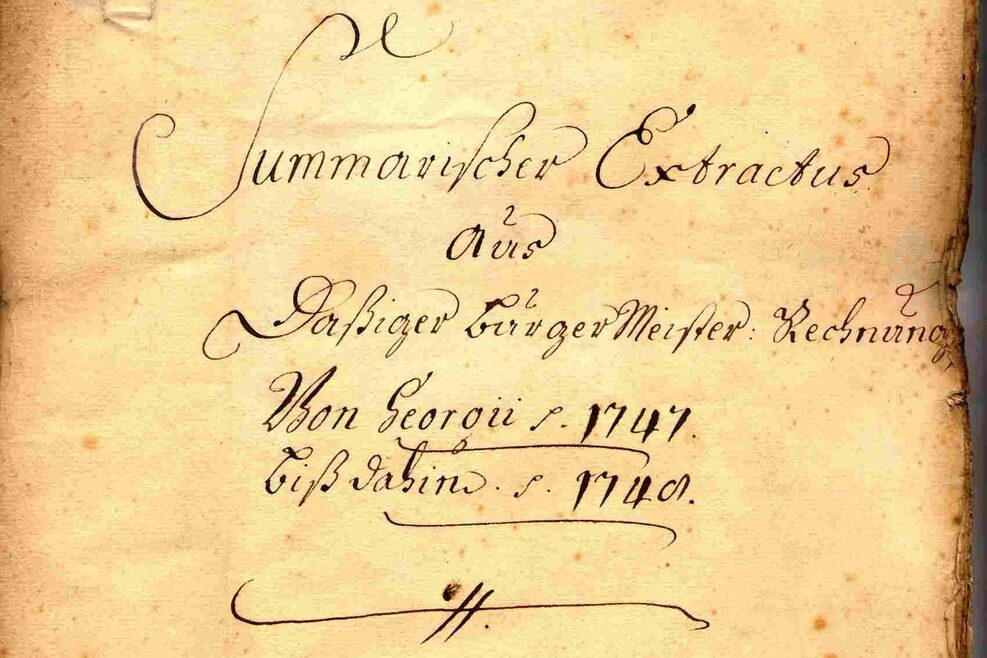 Summarischer Extractus
aus
Daßiger BurgerMeister: Rechnung
Von Georgii s. 1747.
biß dahin s. 1748.